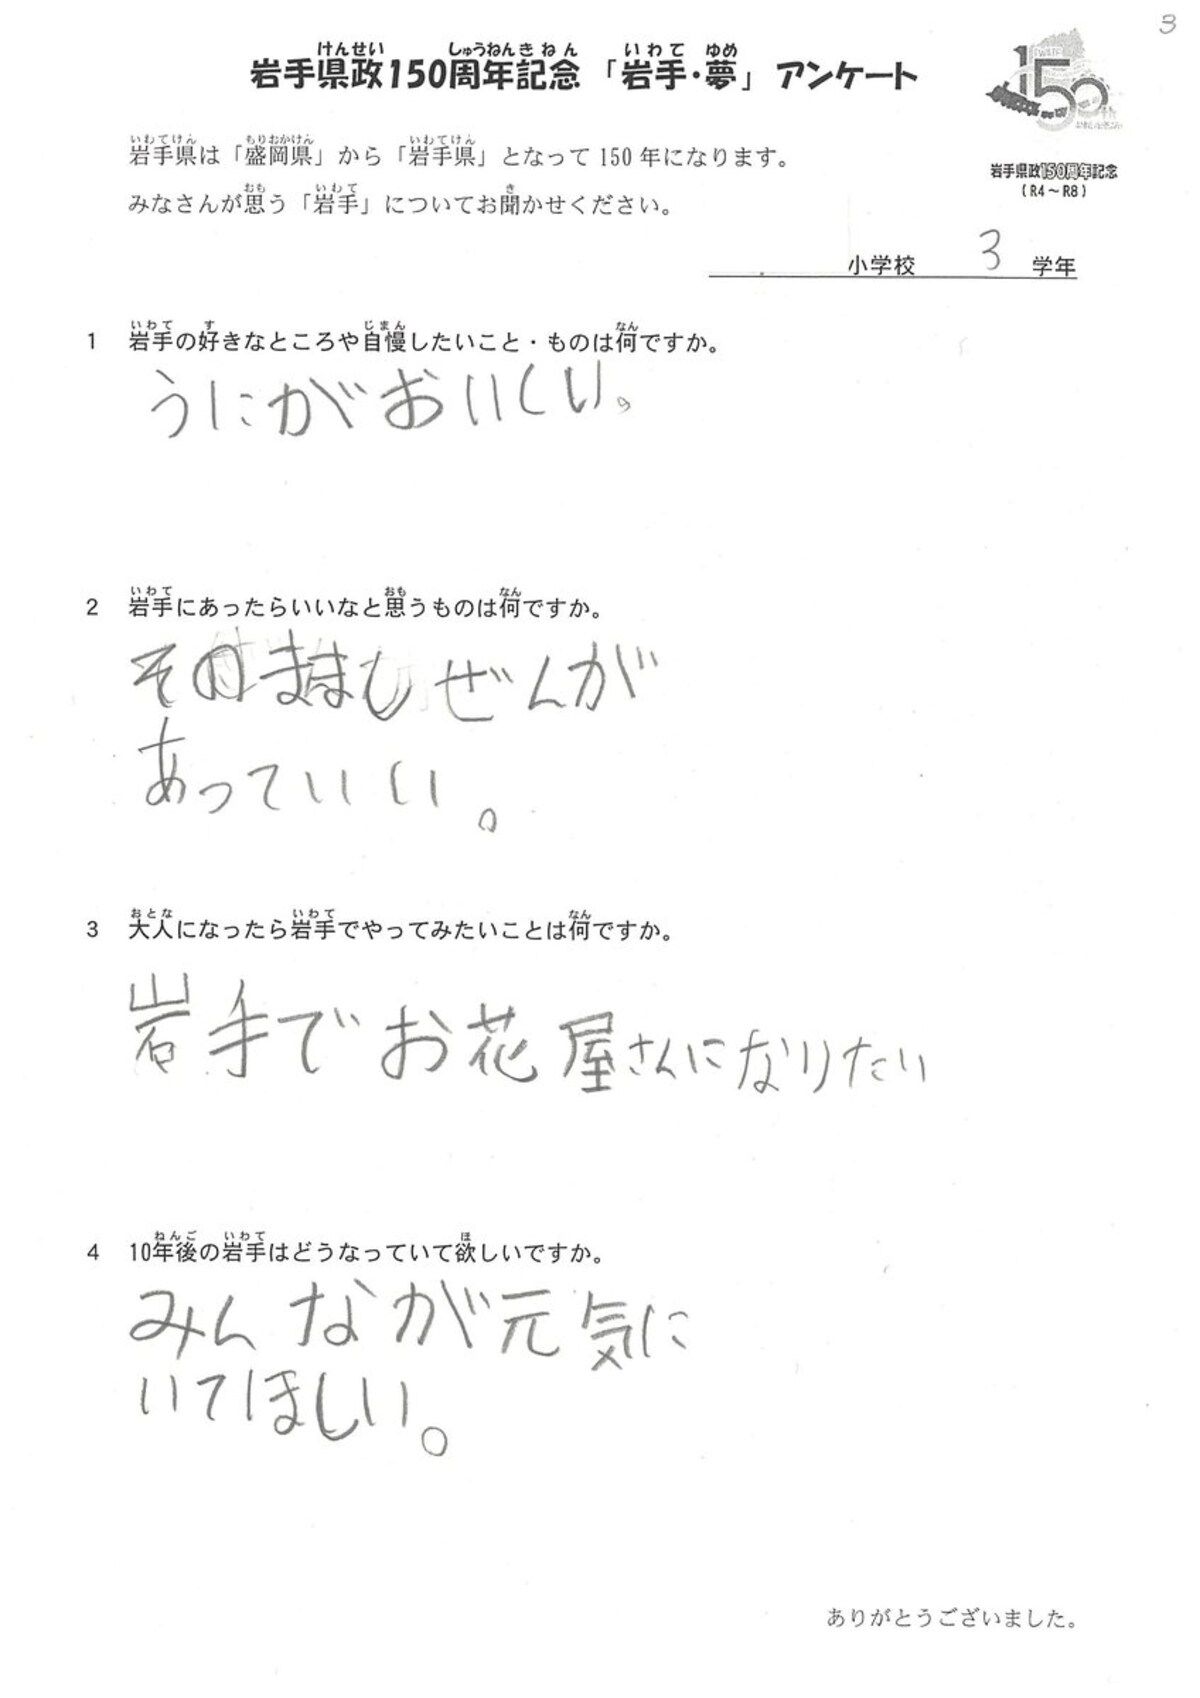 3
岩手県政150周年記念「岩手・夢」アンケート
岩手県は「盛岡県」から「岩手県」となって150年になります。
みなさんが思う「岩手」についてお聞かせください。
150
岩手県政150周年記念
(R4～R8)
小学校 3 学年
1 岩手の好きなところや自慢したいこと・ものは何ですか。
うにがおいしい。
2 岩手にあったらいいなと思うものは何ですか。
そのままもしぜんが
あっていい。
3 大人になったら岩手でやってみたいことは何ですか。
岩手でお花屋さんになりたい
4 10年後の岩手はどうなっていて欲しいですか。
みんなが元気に
いてほしい。
ありがとうございました。